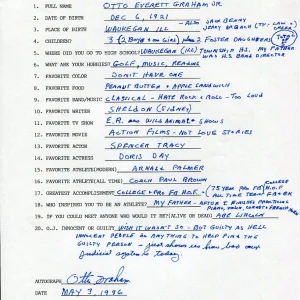 1. FULL NAME OTTO EVERETT GRAHAM JR.
2. DATE OF BIRTH DEC 6, 1921
3. PLACE OF BIRTH WAUKEGAN ILL - ALSO JACK BENNY
JERRY ORBACH (TV-LAW +
4. CHILDREN? 3 (2 BOYS + ONE GIRL) plus 2 FOSTER DAUGHTERS
5. WHERE DID YOU GO TO HIGH SCHOOL? WAUKEGAN (ILL) TOWNSHIP HS. MY FATHER
WAS H.S. BAND DIRECTOR
6. WHAT ARE YOUR HOBBIES? GOLF, MUSIC, READING
7. FAVORITE COLOR DON'T HAVE ONE
8. FAVORITE FOOD PEANUT BUTTER + APPLE SANDWICH
9. FAVORITE BAND/MUSIC CLASSICAL - HATE ROCK & ROLL - TOO LOUD
10. FAVORITE WRITER SHELDON (SIDNEY)
11. FAVORITE TV SHOW E.R. AND WILD ANIMAL SHOWS
12. FAVORITE MOVIE ACTION FILMS - NOT LOVE STORIES
13. FAVORITE ACTOR SPENCER TRACY
14. FAVORITE ACTRESS DORIS DAY
15. FAVORITE ATHLETE(NOW) ARNALL PALMER
16. FAVORITE ATHLETE(ALL TIME) COACH PAUL BROWN
17. GREATEST ACCOMPLISHMENT COLLEGE + PRO FB HOF. COLLEGE
(75 YEAR PRO FB HOF
ALL TIME TEAM FB QB
18. WHO INSPIRED YOU TO BE AN ATHLETE? MY FATHER - AFTER I FINISHED PRACTICING
PIANO, VIOLIN, CORNET + FRENCH HORN
19. IF YOU COULD MEET ANYONE WHO WOULD IT BE(ALIVE OR DEAD) ABE LINCOLN
20. O.J. INNOCENT OR GUILTY WISH IT WASN'T SO - BUT GUILTY AS HELL
INNOCENT PEOPLE DO ANYTHING TO HELP FIND THE
GUILTY PERSON - just shows us how bad our
Judicial system is today.
AUTOGRAPH Otto Graham
DATE MAY 3, 1996